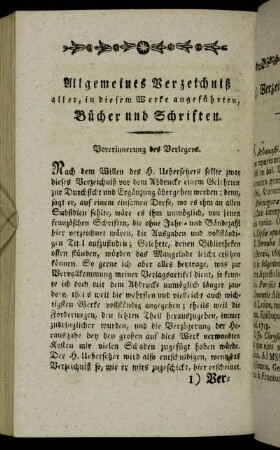 Allgemeines Verzeichniß
aller, in diesem Werke angeführten,
Bücher und Schriften.
Vorerinnerung des Verlegers.
Nach dem Willen des H. Uebersetzers sollte zwar
dieses Verzeichniß vor dem Abdrucke einem Gelehrten
zur Durchsicht und Ergänzung übergeben werden; denn,
sagt er, auf einem einsamen Dorfe, wo es ihm an allen
Subsidien fehlte, wäre es ihm unmöglich, von jenen
französischen Schriften, die ohne Jahr- und Bändezahl
hier verzeichnet wären, die Ausgaben und vollständi-
gen Titel aufzufinden; Gelehrte, denen Bibliotheken
offen stünden, würden das Mangelnde leicht ersetzen
können. So gerne ich aber alles beytrage, was zur
Vervollkommung meiner Verlagsartikel dient, so konn-
te ich doch mit dem Abdrucke unmöglich länger zau-
dern, theils weil die mehrsten und trefflichste auch wich-
tigsten Werke vollständig angegeben; theils weil die
Forderungen, den letzten Theil herauszugeben, immer
zudringlicher wurden, und die Verzögerung der He-
rausgabe bey den großen auf dies Werk verwandten
Kosten mir vielen Schaden zugefügt haben würde.
Der H. Uebersetzer wird also entschuldigen, wenn das
Verzeichniß so, wie er mirs zugeschickt, hier erscheinet.
1) Ver-